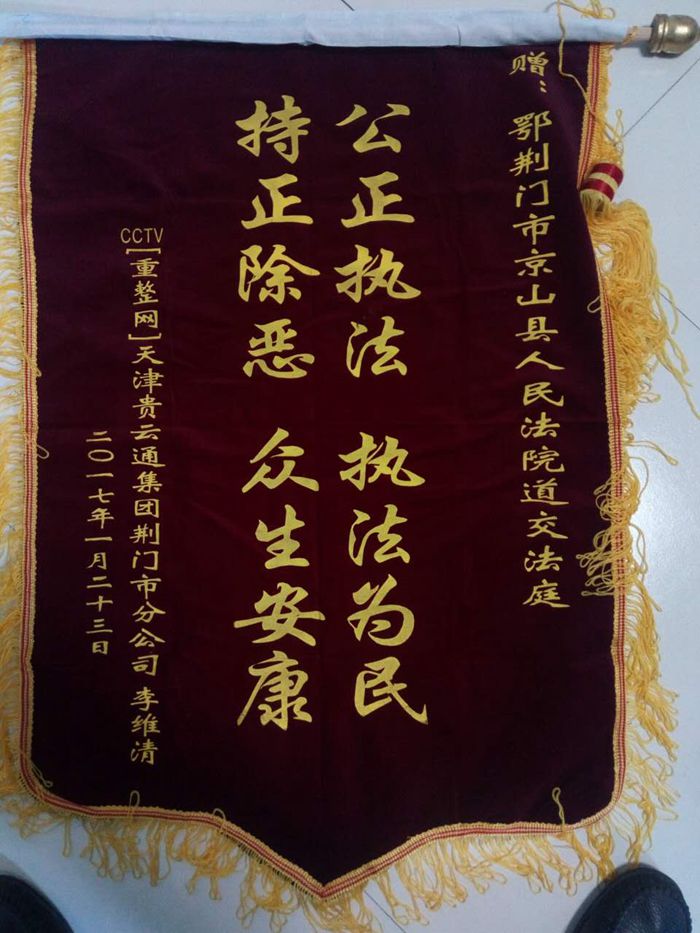 赠：鄂荆门市京山县人民法院道交法庭
公正执法 执法为民
持正除恶 众生安康
CCTV[重整网]天津贵云通集团荆门市分公司 李维清
二〇一七年一月二十三日